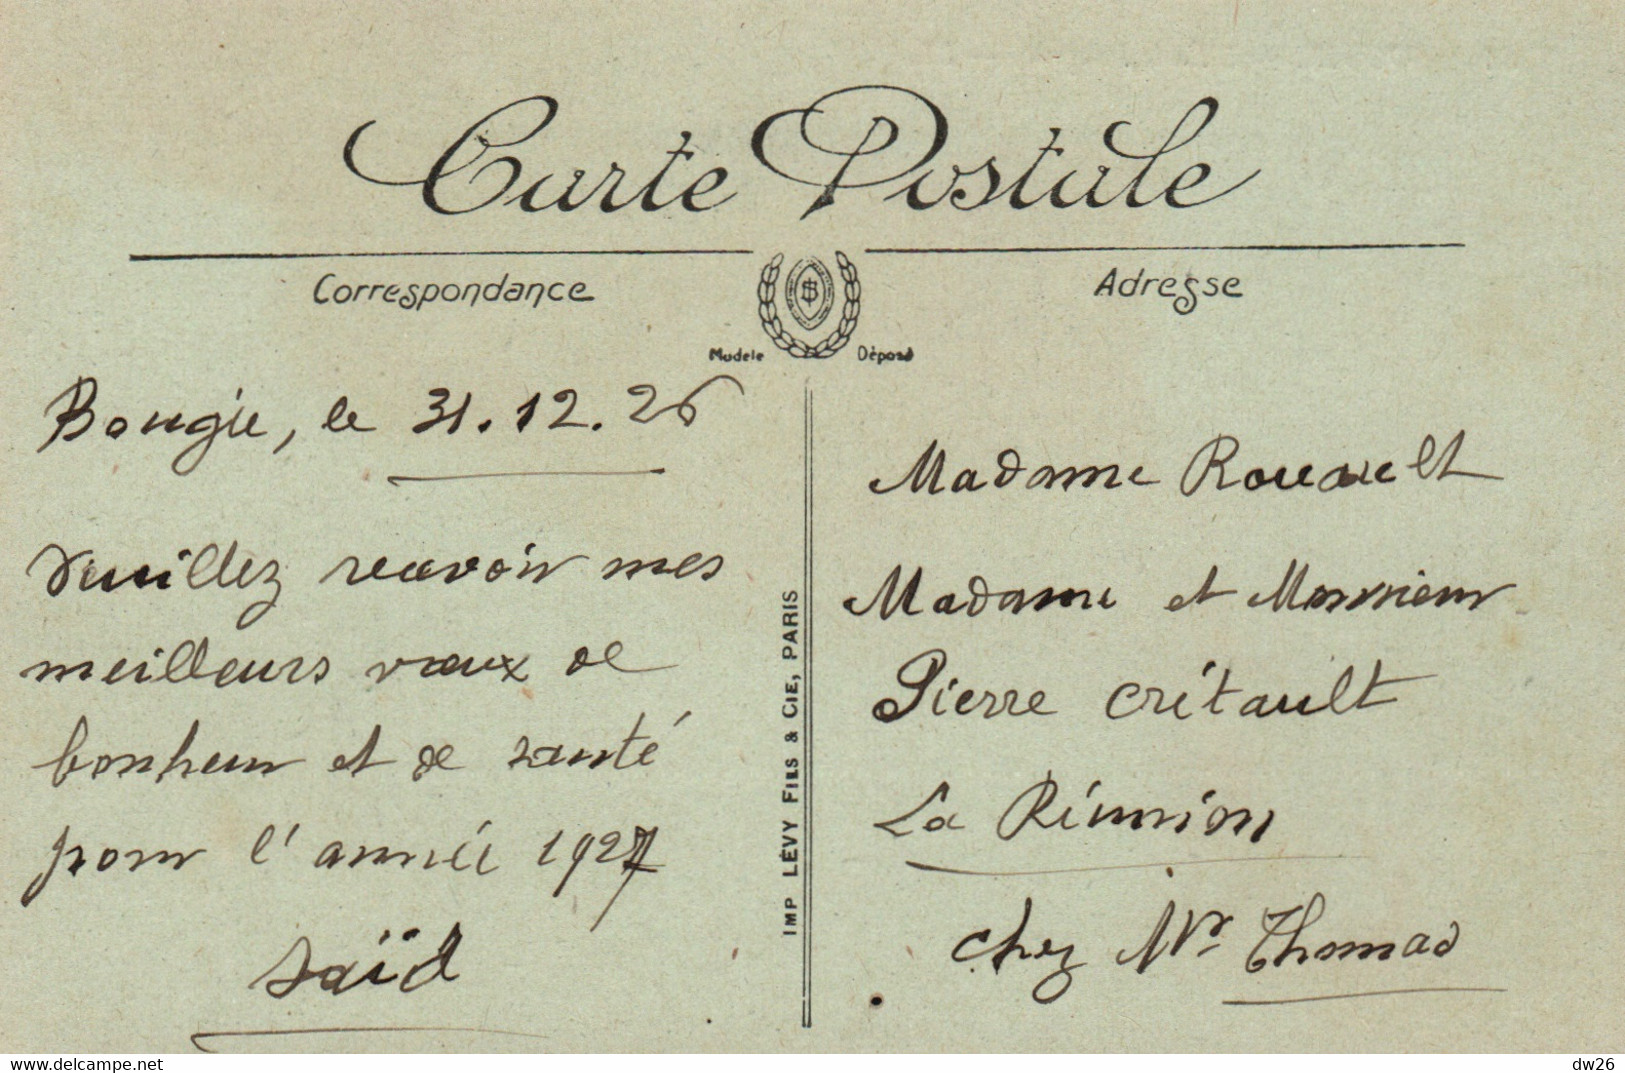 Carte Postale
Correspondance
Adresse
Modèle Déposé
Bougie, le 31.12.26
Veuillez recevoir mes
meilleurs vœux de
bonheur et de santé
pour l'année 1927
Saïd
IMP LÉVY FILS & CIE, PARIS
Madame Rouault
Madame et Monsieur
Pierre Crétault
La Réunion
chez Mr Thomas
www.delcampe.net
dw26